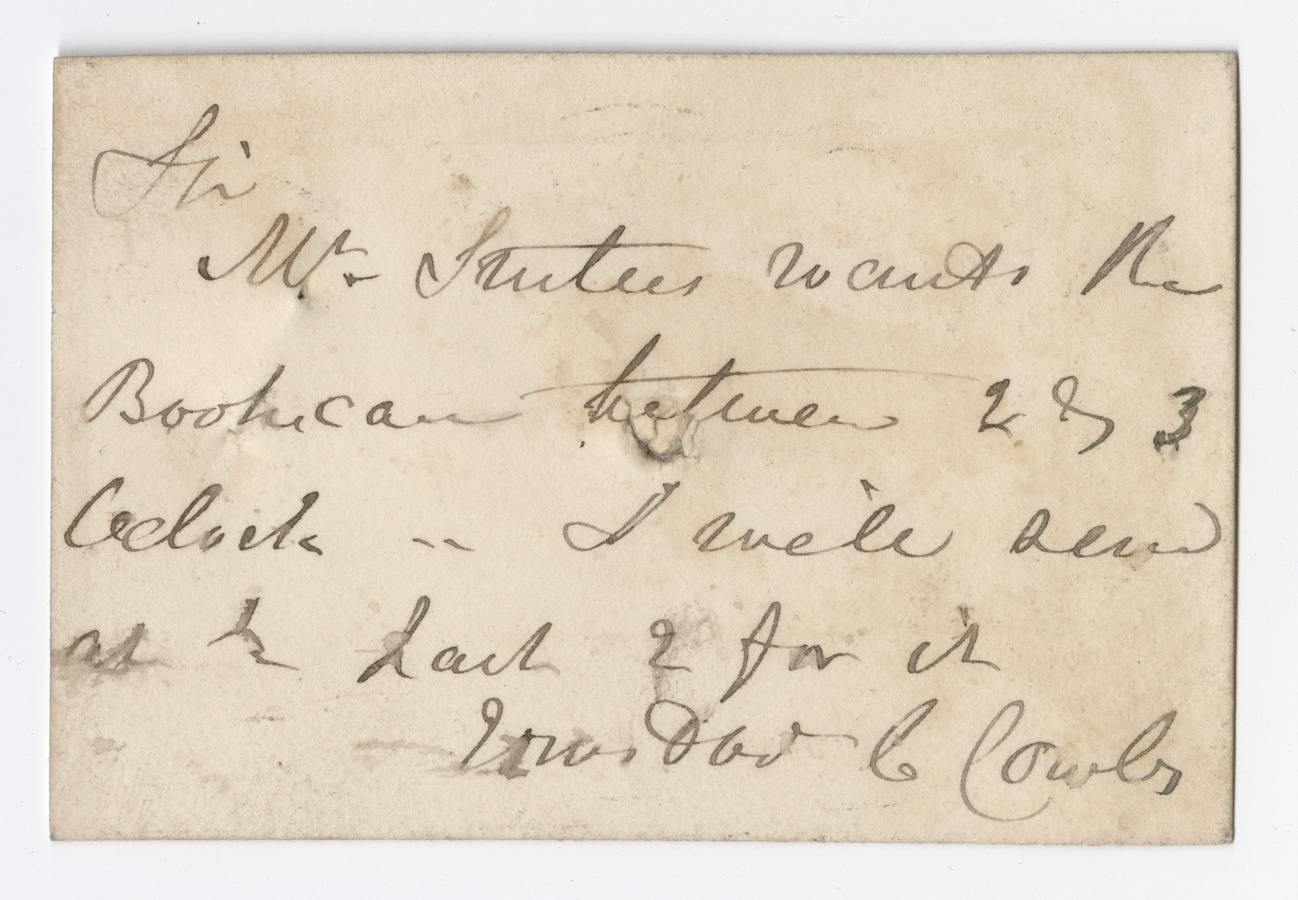 Sir
Mr. wants the
Bookcase between 2 & 3
Oclock -- I will send
at ½ past 2 for it
Yours C Cowles